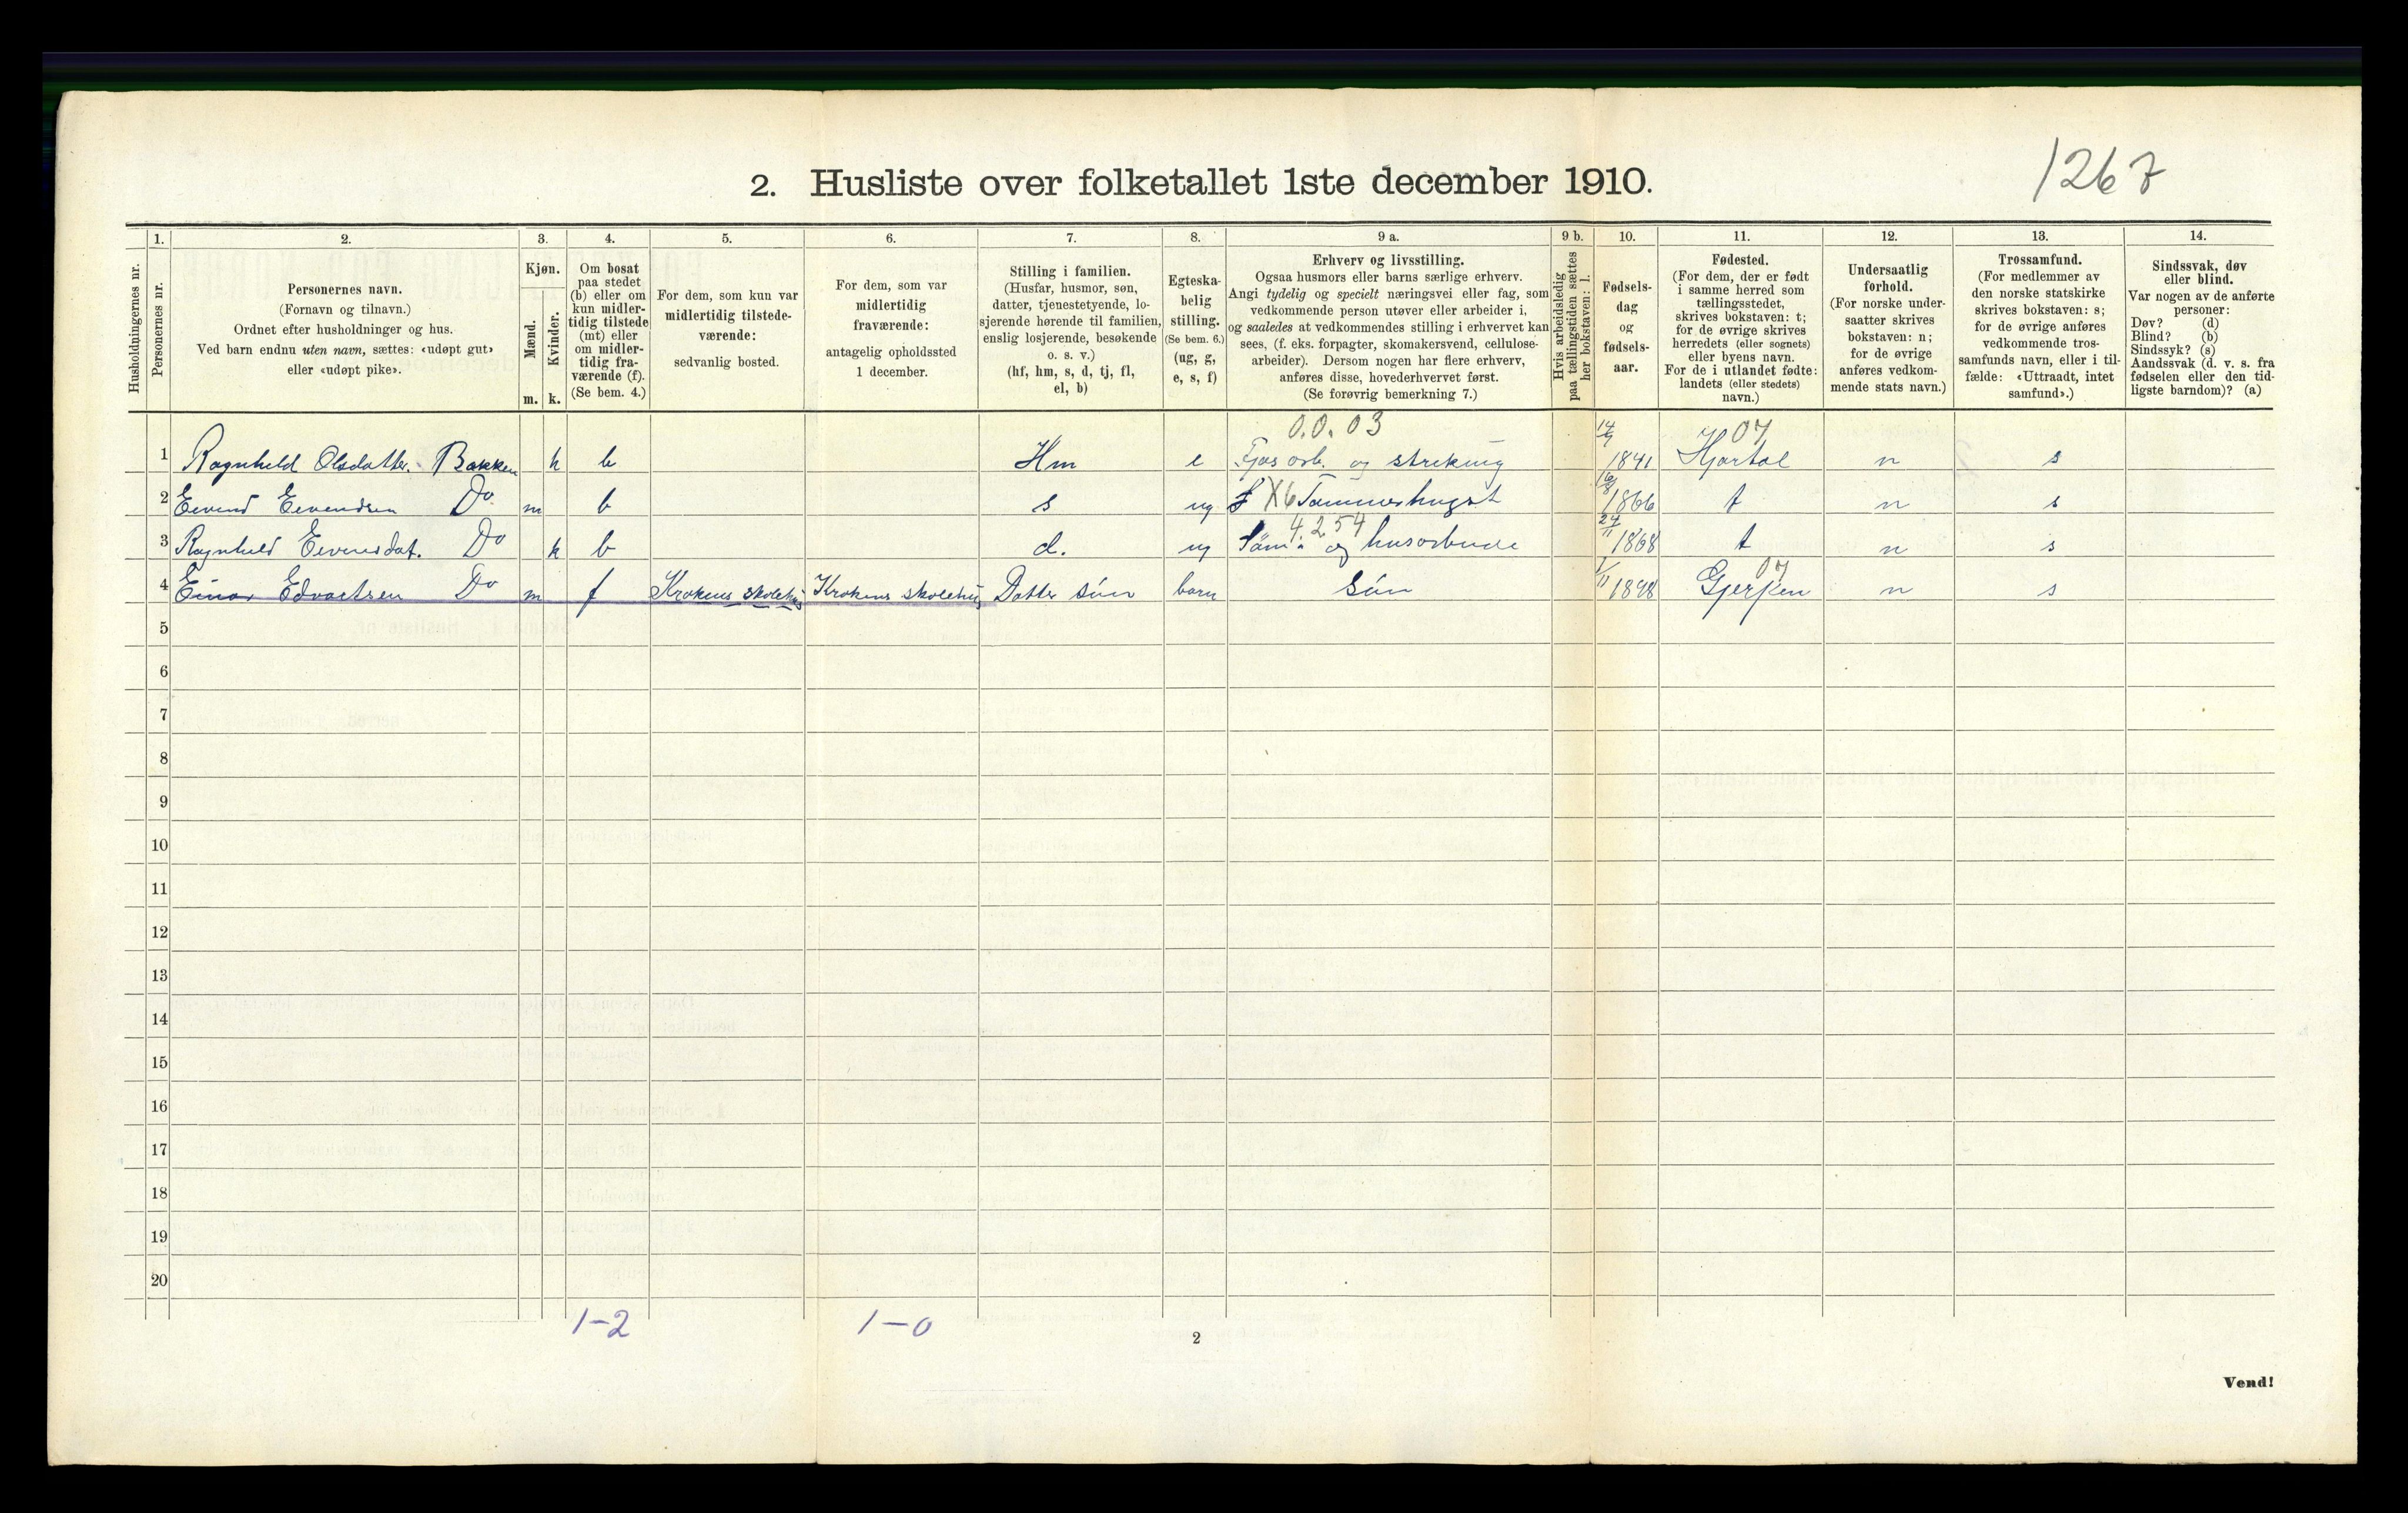 1267
2. Husliste over folketallet 1ste december 1910.
Husholdningernes nr.
1.
Personernes nr.
2.
Personernes navn.
(Fornavn og tilnavn.)
Ordnet efter husholdninger og hus.
Ved barn endnu uten navn, sættes: «udøpt gut»
eller «udøpt pike».
3.
Kjøn.
Mænd.
Kvinder.
m. k.
4.
Om bosat
paa stedet
(b) eller om
kun midler-
tidig tilstede
(mt) eller
om midler-
tidig fra-
værende (f).
(Se bem. 4.)
5.
For dem, som kun var
midlertidig tilstede-
værende:
sedvanlig bosted.
6.
For dem, som var
midlertidig
fraværende:
antagelig opholdssted
1 december.
7.
Stilling i familien.
(Husfar, husmor, søn,
datter, tjenestetyende, lo-
sjerende hørende til familien,
enslig losjerende, besøkende
o. s. v.)
(hf, hm, s, d, tj, fl,
el, b)
8.
Egteska-
belig
stilling.
(Se bem. 6.)
(ug, g,
e, s, f)
9 a.
Erhverv og livsstilling.
Ogsaa husmors eller barns særlige erhverv.
Angi tydelig og specielt næringsvei eller fag, som
vedkommende person utøver eller arbeider i,
og saaledes at vedkommendes stilling i erhvervet kan
sees, (f. eks. forpagter, skomakersvend, cellulose-
arbeider). Dersom nogen har flere erhverv,
anføres disse, hovederhvervet først.
(Se forøvrig bemerkning 7.)
9 b.
Hvis arbeidsledig
paa tællingstiden sættes
her bokstaven: l.
10.
Fødsels-
dag
og
fødsels-
aar.
11.
Fødested.
(For dem, der er født
i samme herred som
tællingsstedet,
skrives bokstaven: t;
for de øvrige skrives
herredets (eller sognets)
eller byens navn.
For de i utlandet fødte:
landets (eller stedets)
navn.)
12.
Undersaatlig
forhold.
(For norske under-
saatter skrives
bokstaven: n;
for de øvrige
anføres vedkom-
mende stats navn.)
13.
Trossamfund.
(For medlemmer av
den norske statskirke
skrives bokstaven: s;
for de øvrige anføres
vedkommende tros-
samfunds navn, eller i til-
fælde: «Uttraadt, intet
samfund».)
14.
Sindssvak, døv
eller blind.
Var nogen av de anførte
personer:
Døv? (d)
Blind? (b)
Sindssyk? (s)
Aandssvak (d. v. s. fra
fødselen eller den tid-
ligste barndom)? (a)
0.0.03 14/9 07
1 Ragnhild Olsdatter. Bakken k b Hm e Fjøs arb. og strikning 1841 Hjartal n s
2 Eivend Eivendsen Do m b s ug X6 Tømmerhugst 1866 t n s
4.254 24/11
3 Ragnhild Eivensdat. Do k b d. ug Søm. og husarbeide 1868 t n s
07
4 Einar Edvartsen Do m f Krokens skolehus Krokens skolehus Datter sön barn Sön 1/11 1898 Gjerpen n s
5
6
7
8
9
10
11
12
13
14
15
16
17
18
19
20
1-2 1-0
2
Vend!